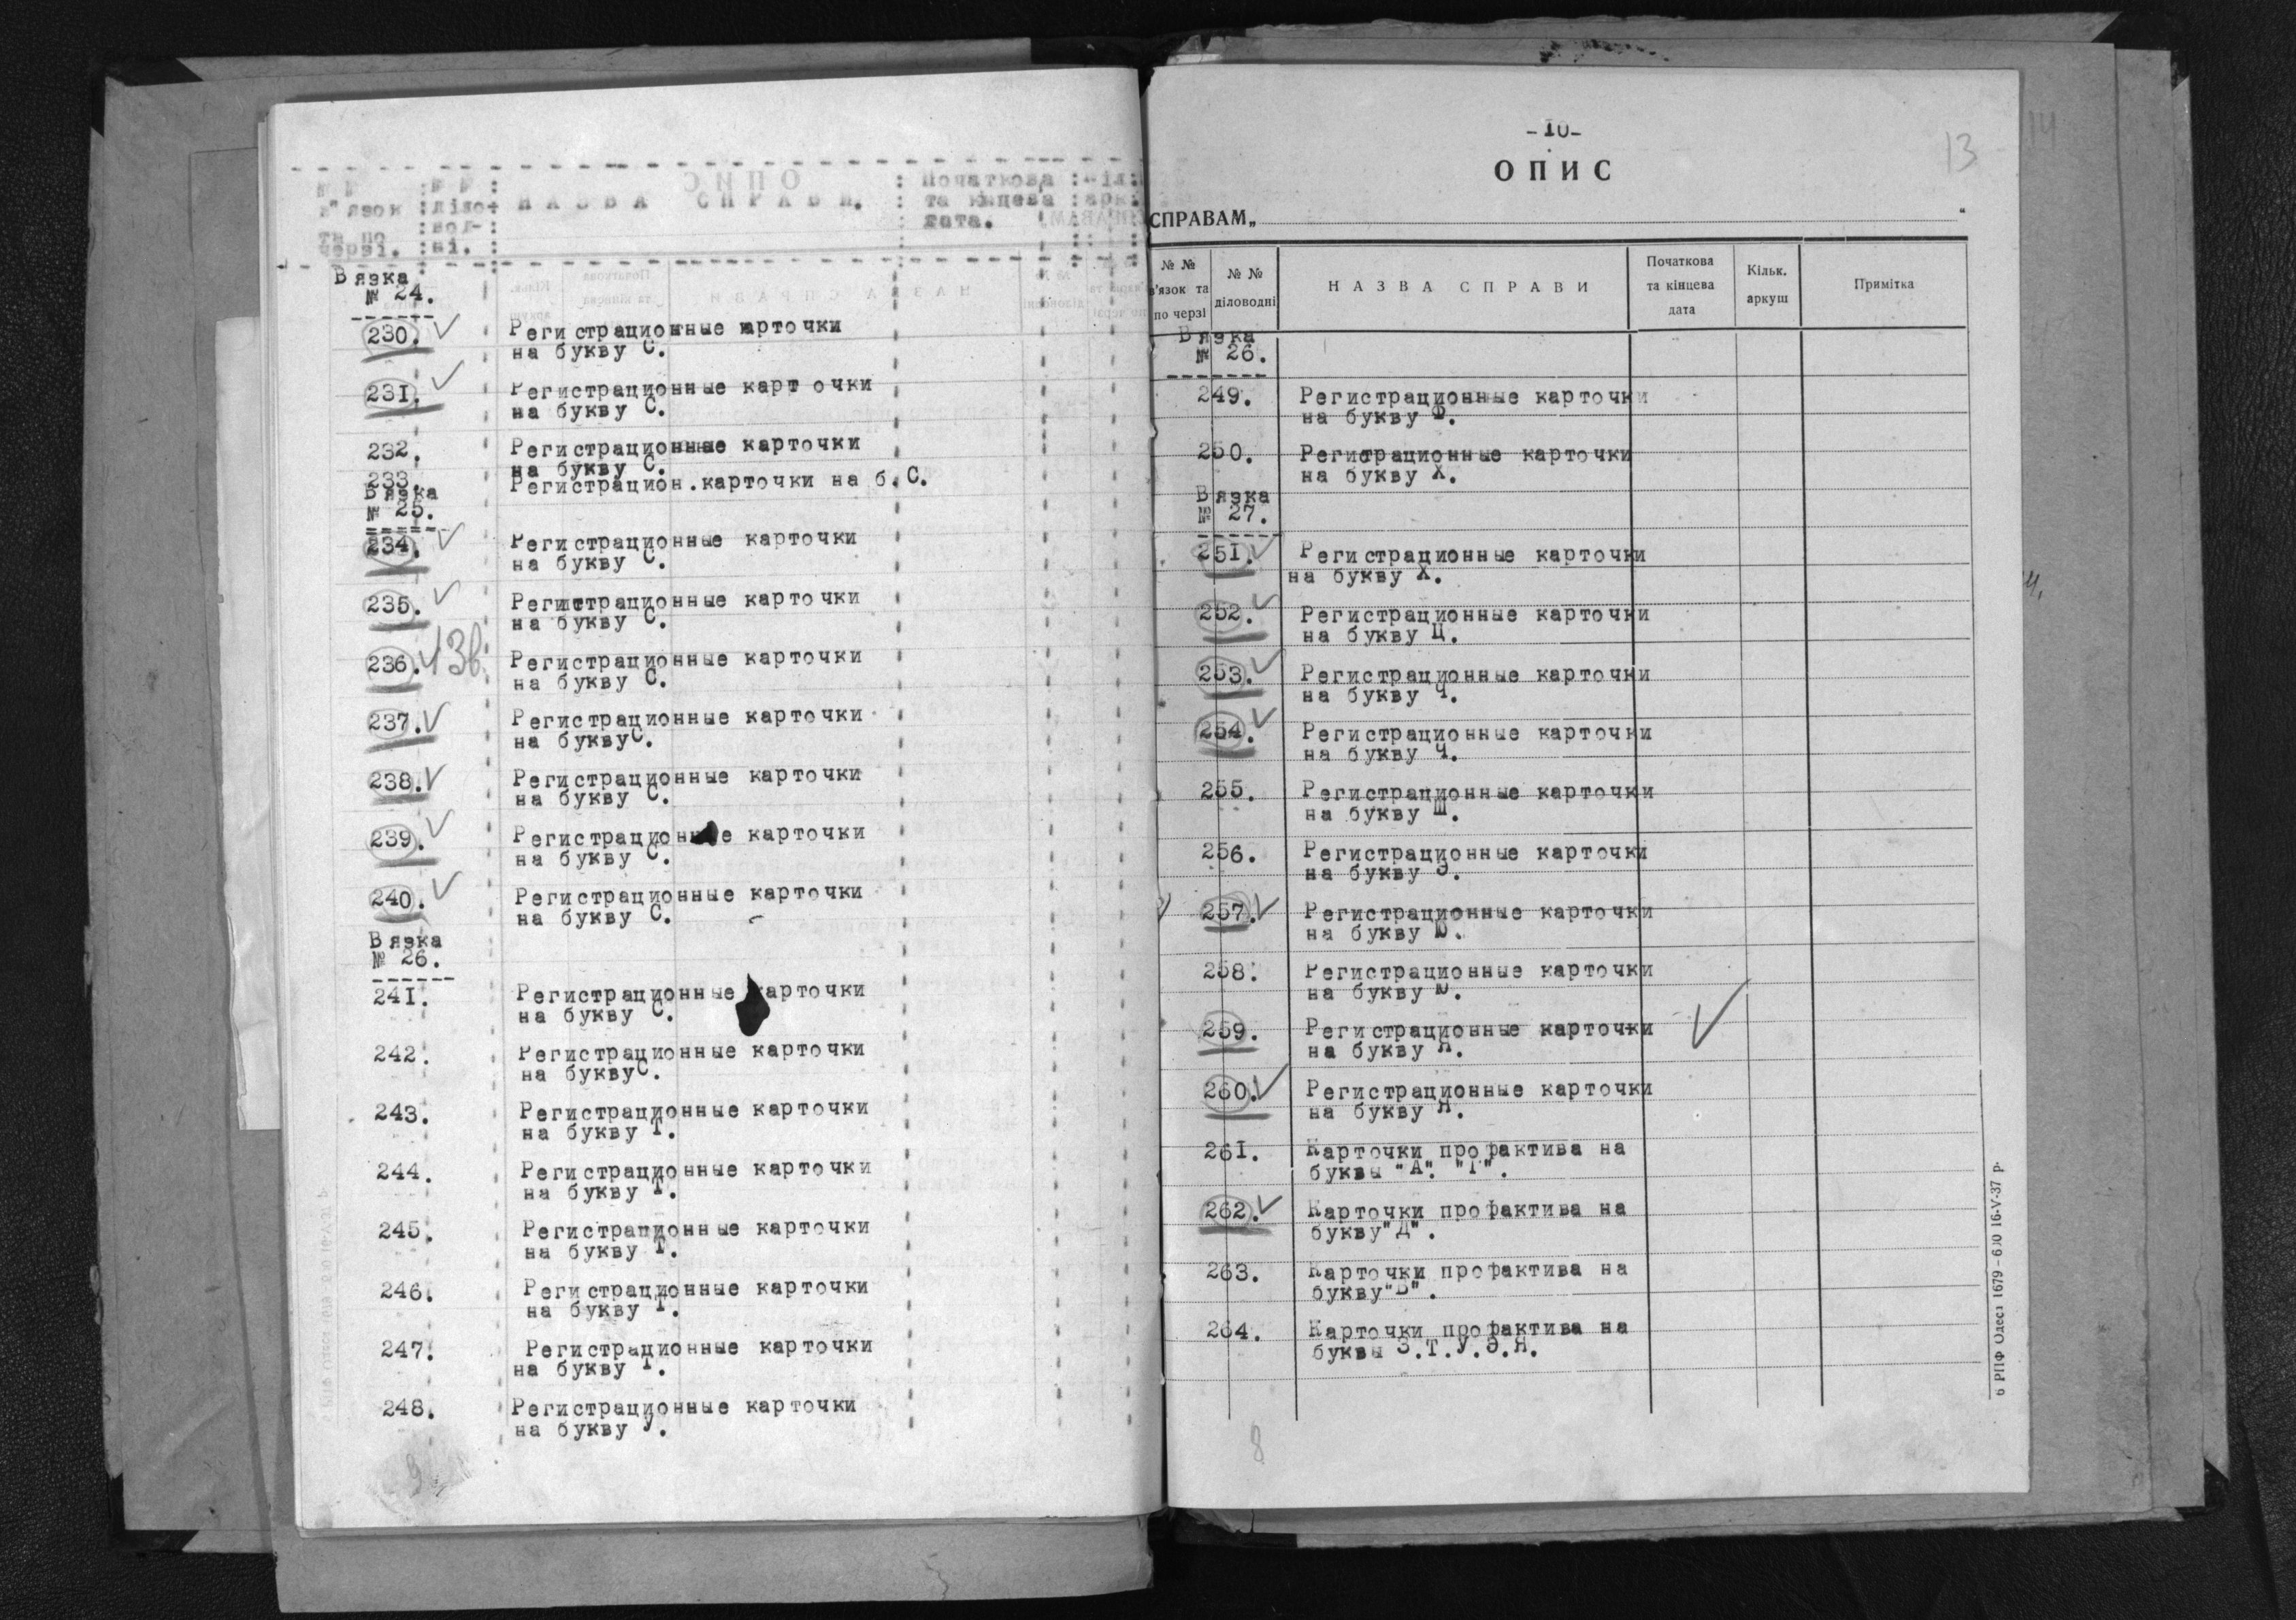 № №
в"язок
та по
черзі.
№ №
діло-
вод-
ні.
НАЗВА СПРАВИ.
Початкова
та кінцева
дата.
Вязка
№ 24.
230. Регистрационные карточки
на букву С.
231. Регистрационные карт очки
на букву С.
232. Регистрационные карточки
на букву С.
233. Регистрацион.карточки на б.С.
Вязка
№ 25.
234. Регистрационные карточки
на букву С.
235. Регистрационные карточки
на букву С.
236. Регистрационные карточки
на букву С.
237. Регистрационные карточки
на буквуС.
238. Регистрационные карточки
на букву С.
239. Регистрационные карточки
на букву С.
240. Регистрационные карточки
на букву С.
Вязка
№ 26.
241. Регистрационные карточки
на букву С.
242. Регистрационные карточки
на буквуС.
243. Регистрационные карточки
на букву Т.
244. Регистрационные карточки
на букву Т.
245. Регистрационные карточки
на букву Т.
246. Регистрационные карточки
на букву Т.
247. Регистрационные карточки
на букву Т.
248. Регистрационные карточки
на букву У.
-10-
13
14
ОПИС
СПРАВАМ„ “
№ №
в'язок та
по черзі
№ №
діловодні
НАЗВА СПРАВИ
Початкова
та кінцева
дата
Кільк.
аркуш
Примітка
Вязка
№ 26.
249. Регистрационные карточки
на букву Ф.
250. Регистрационные карточки
на букву Х.
Вязка
№ 27.
251. Регистрационные карточки
на букву Х.
252. Регистрационные карточки
на букву Ц.
253. Регистрационные карточки
на букву Ч.
254. Регистрационные карточки
на букву Ч.
255. Регистрационные карточки
на букву Ш.
256. Регистрационные карточки
на букву Э.
257. Регистрационные карточки
на букву Ю.
258. Регистрационные карточки
на букву Ю.
259. Регистрационные карточки
на букву Я.
260. Регистрационные карточки
на букву Я.
261. Карточки профактива на
буквы "А". "Г".
262. Карточки профактива на
букву"Д".
263. Карточки профактива на
букву"В".
264. Карточки профактива на
буквы З.Т.У.Э.Я.
8
6 РПФ Одеса 1679 – 600 16-V-37 р.